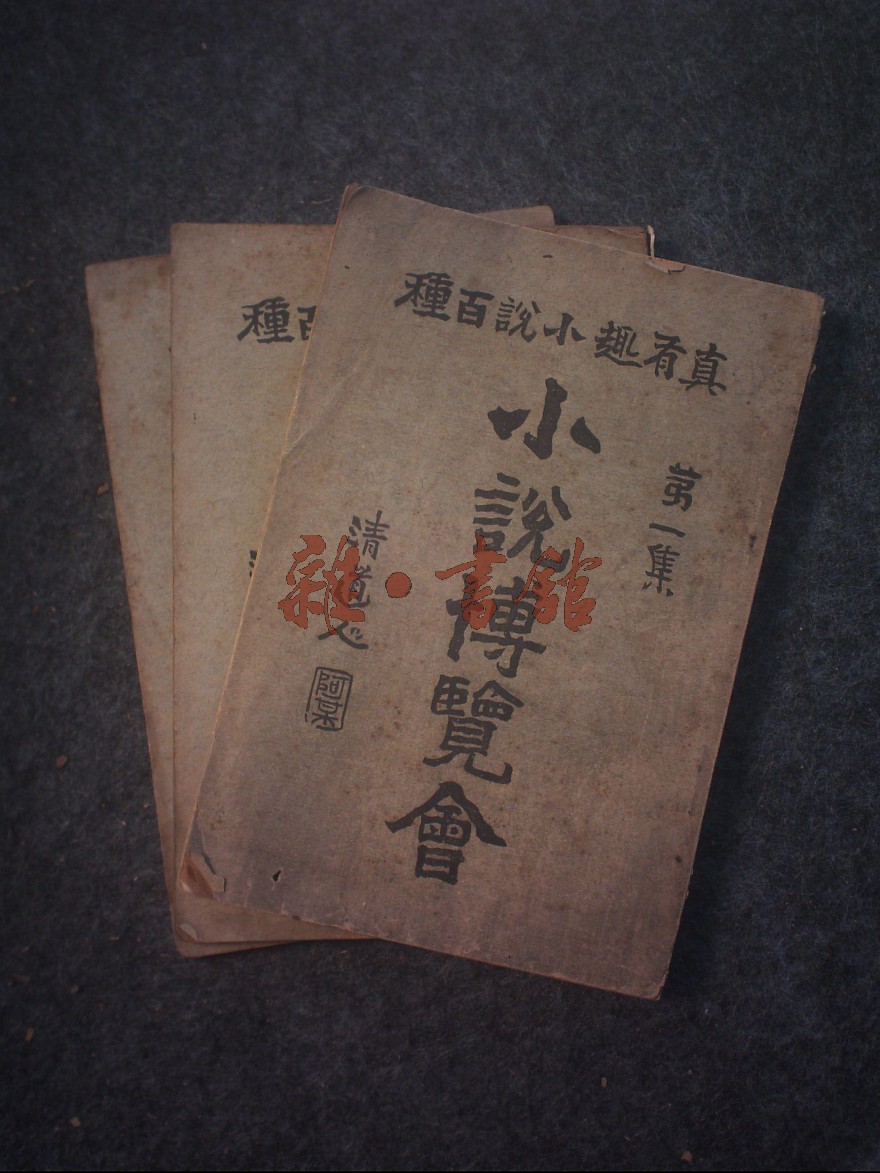 真有趣小說百種
第一集
小說博覽會
清道人
阿某
種百
雜·書館